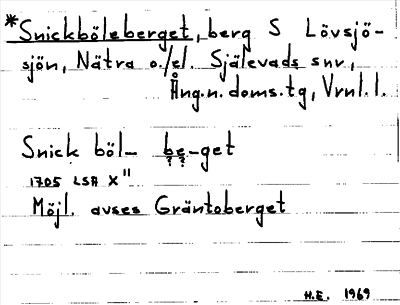 *Snickböleberget, berg S Lövsjö-
sjön, Nätra o./el. Själevads snr,
Ång.n. doms.tg, Vrnl.l.
Snick böl- be-get
? ?
1705 LSA X"
Möjl. avses Gräntoberget
H.E. 1969